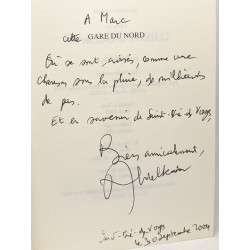 A Marc
cette GARE DU NORD
Où se sont croisés, comme une
chanson sous la pluie, des milliards
de pas.
Et en souvenir de Saint-Dié des Vosges
Bien amicalement,
Saint-Dié-des-Vosges
le 30 septembre 2004